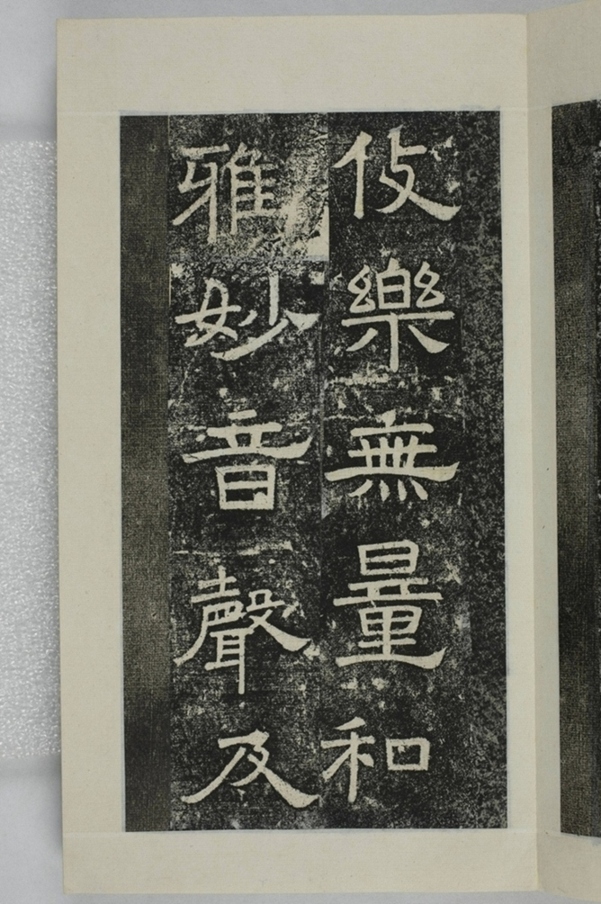 伎樂無量和
雅妙音聲及